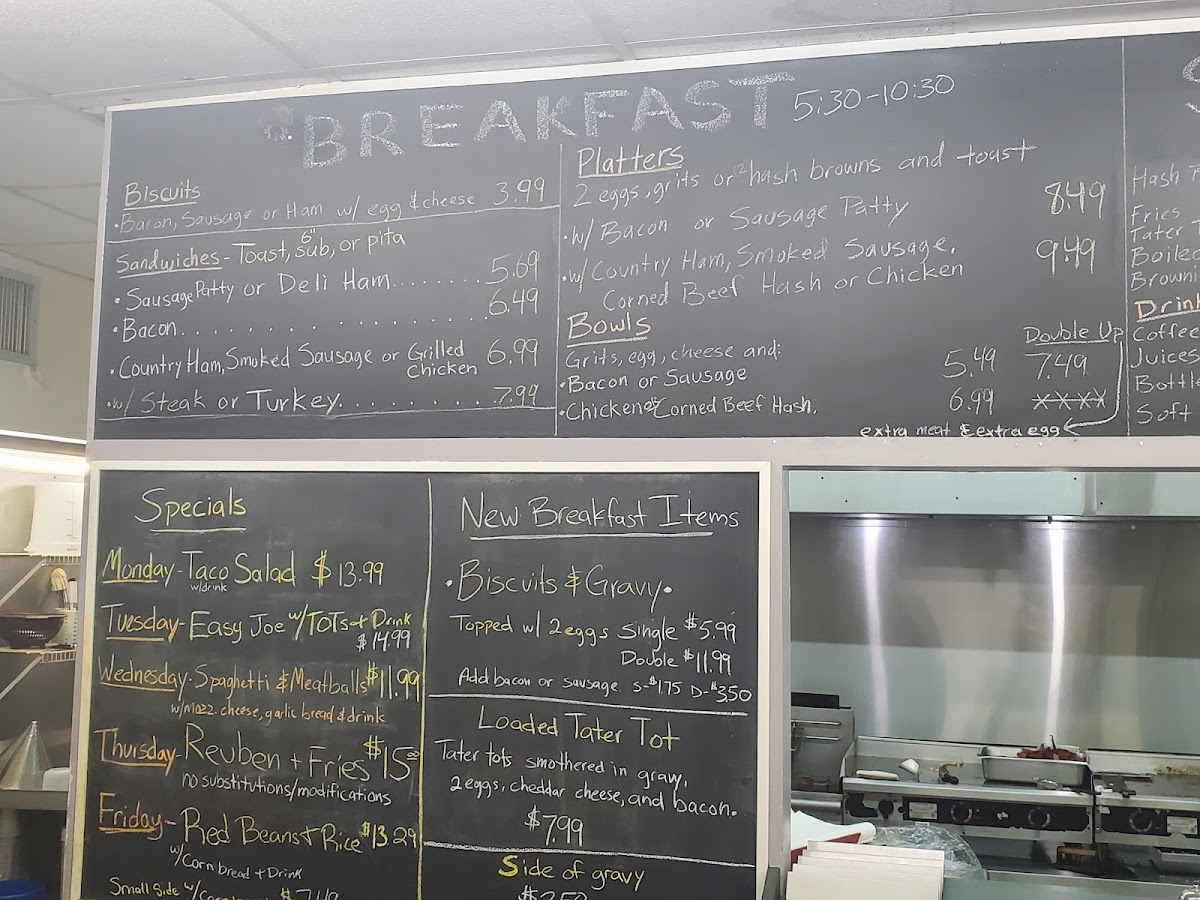 BREAKFAST 5:30-10:30
Biscuits
• Bacon, Sausage or Ham w/ egg & cheese 3.99
Sandwiches - Toast, 6" sub, or pita
• Sausage Patty or Deli Ham........ 5.69
• Bacon. . . . . . . . . . . . . . . . 6.49
• Country Ham, Smoked Sausage or Grilled Chicken 6.99
• w/ Steak or Turkey. . . . . . . . . . 7.99
Platters
2 eggs, grits or "2" hash browns and toast
• w/ Bacon or Sausage Patty 8.49
• w/ Country Ham, Smoked Sausage, 9.49
Corned Beef Hash or Chicken
Bowls
Double Up
Grits, egg, cheese and:
• Bacon or Sausage 5.49 7.49
• Chicken or Corned Beef Hash. 6.99 xxxx
extra meat & extra egg
Hash
Fries
Tater
Boiled
Browni
Drin
Coffee
Juices
Bottl
Soft
Specials
Monday - Taco Salad $13.99
w/drink
Tuesday - Easy Joe w/TOTs + Drink
$14.99
Wednesday - Spaghetti & Meatballs $11.99
w/mozz. cheese, garlic bread & drink
Thursday - Reuben + Fries $15.00
no substitutions/modifications
Friday - Red Beans + Rice $13.29
w/ Corn bread + Drink
Small Side w/ $7.49
New Breakfast Items
• Biscuits & Gravy •
Topped w/ 2 eggs Single $5.99
Double $11.99
Add bacon or sausage S-$1.75 D-$3.50
Loaded Tater Tot
Tater tots smothered in gravy,
2 eggs, cheddar cheese, and bacon.
$7.99
Side of gravy
$2.50